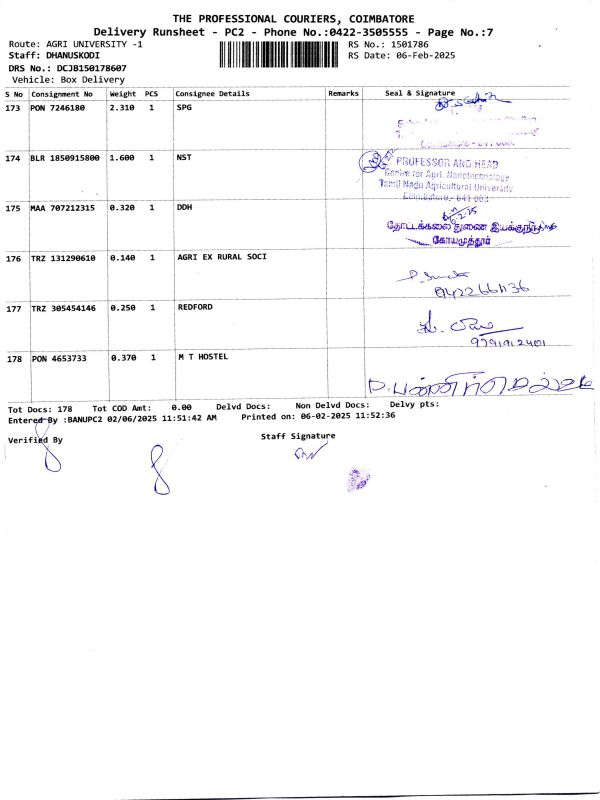 THE PROFESSIONAL COURIERS, COIMBATORE
Delivery Runsheet - PC2 - Phone No.:0422-3505555 - Page No.:7
Route: AGRI UNIVERSITY -1 RS No.: 1501786
Staff: DHANUSKODI RS Date: 06-Feb-2025
DRS No.: DCJB150178607
Vehicle: Box Delivery
S No Consignment No Weight PCS Consignee Details Remarks Seal & Signature
173 PON 7246180 2.310 1 SPG
174 BLR 1850915800 1.600 1 NST
PROFESSOR AND HEAD
Centre for Agri. Nanotechnology
Tamil Nadu Agricultural University
Coimbatore - 641 003
175 MAA 707212315 0.320 1 DDH
தோட்டக்கலை துணை இயக்குநர்
கோயமுத்தூர்
176 TRZ 131290610 0.140 1 AGRI EX RURAL SOCI
177 TRZ 305454146 0.250 1 REDFORD
9791912401
178 PON 4653733 0.370 1 M T HOSTEL
Tot Docs: 178 Tot COD Amt: 0.00 Delvd Docs: Non Delvd Docs: Delvy pts:
Entered By :BANUPC2 02/06/2025 11:51:42 AM Printed on: 06-02-2025 11:52:36
Verified By Staff Signature